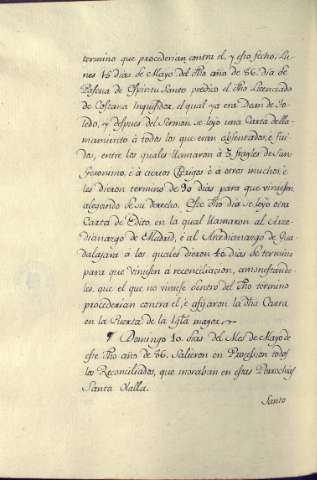 termino que procederian contra el, y esto fecho, Lu-
nes 15 dias de Mayo del dho año de 86. dia de
Pascua de Spiritu Santo predico el dho Licenciado
de Costana Inquisidor, el qual ya era Dean de To-
ledo, y despues del Sermon se leyo una Carta de lla-
mamiento à todos los que eran absentados, è fui-
dos, entre los quales llamaron à 3 frayles de San
Geronimo, è à ciertos Clerigos è à otros muchos: è
les dieron termino de 90 dias para que viniesen
alegando de su derecho. Este dho dia se leyo otra
Carta de Edito, en la qual llamaron al Arce-
dianazgo de Madrid, è al Arcedianazgo de Gua-
dalajara à los quales dieron 40 dias de termino
para que viniesen a reconciliacion, amonestando-
les, que el que no viniese dentro del dho termino
procederian contra èl, è afijaron la dha Carta
en la Puerta de la Iglª mayor.
¶ Domingo 10 dias del Mes de Mayo de
este dho año de 86. Salieron en Procesion todos
los Reconciliados, que moraban en estas Parrochias
Santa Olalla.
Santo